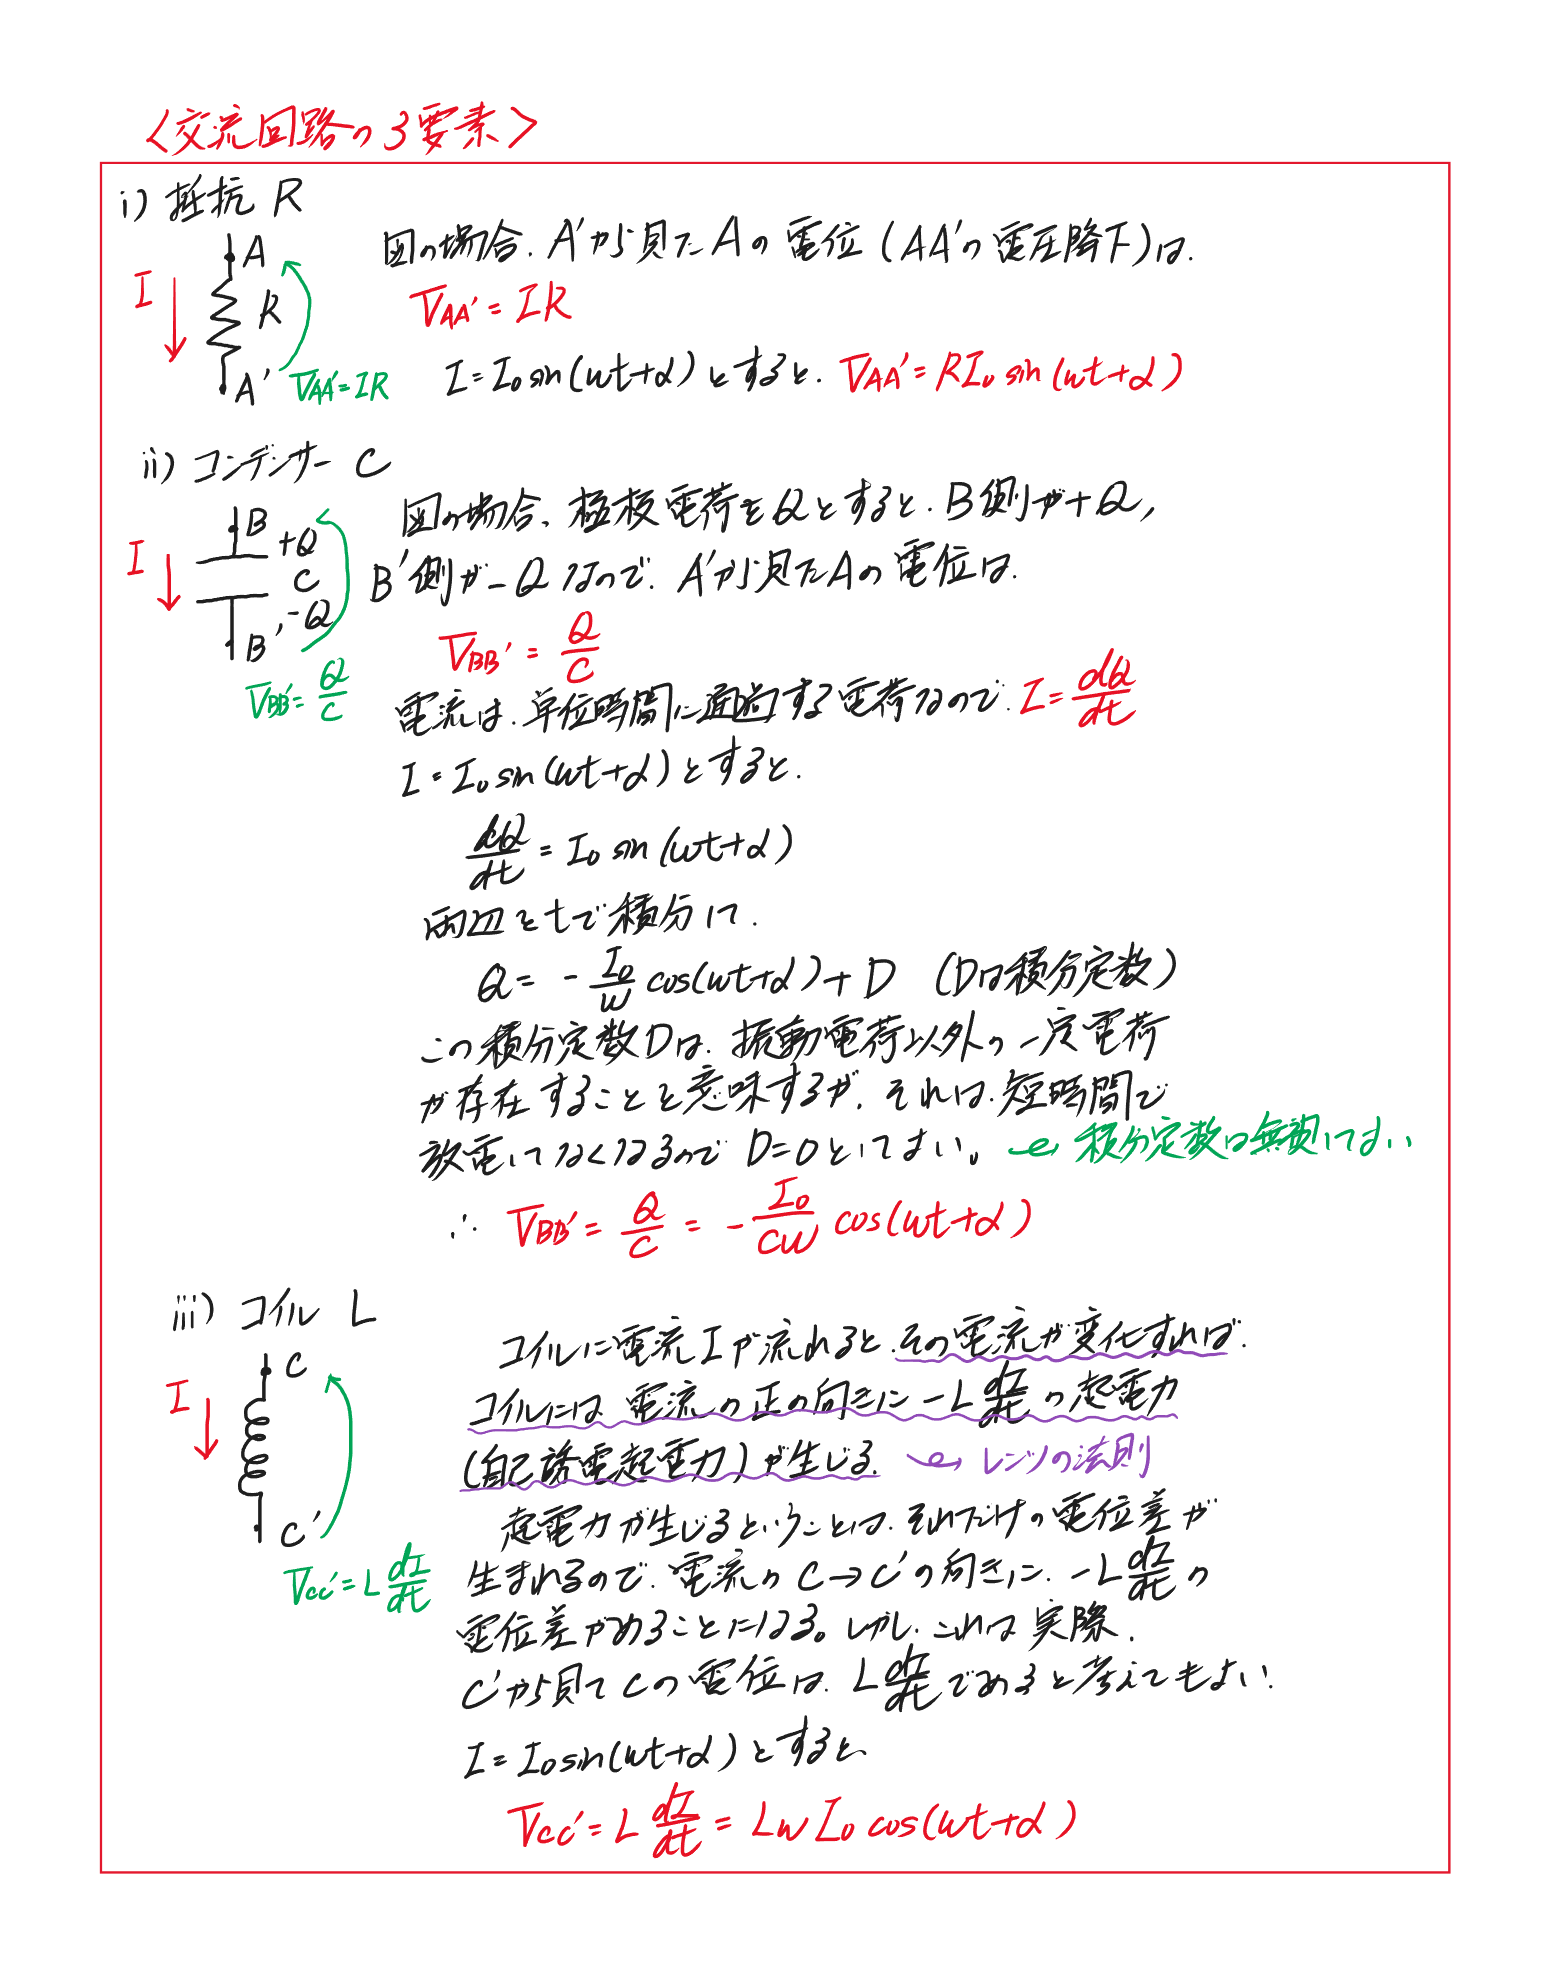 <交流回路の3要素>
i) 抵抗 R
A
I
R
A'
V_AA'=IR
図の場合、A'から見たAの電位(AA'の電圧降下)は、
V_AA'=IR
I=I₀sin(ωt+α)とすると、V_AA'=RI₀sin(ωt+α)
ii) コンデンサー C
B
+Q
I
C
-Q
B'
V_BB'=Q/C
図の場合、極板電荷をQとすると、B側が+Q,
B'側が-Qなので、A'から見たAの電位は、
V_BB'=Q/C
電流は、単位時間に通過する電荷なので、I=dQ/dt
I=I₀sin(ωt+α)とすると、
dQ/dt=I₀sin(ωt+α)
両辺をtで積分して、
Q=-I₀/ω cos(ωt+α)+D (Dは積分定数)
この積分定数Dは、振動電荷以外の一定電荷
が存在することを意味するが、それは、短時間で
放電してなくなるのでD=0としてよい。→積分定数は無視してよい
∴ V_BB'=Q/C=-I₀/Cω cos(ωt+α)
iii) コイル L
C
I
C'
V_CC'=L dI/dt
コイルに電流Iが流れると、その電流が変化すれば、
コイルには電流の正の向きに-L dI/dtの起電力
(自己誘電起電力)が生じる。→レンツの法則
起電力が生じるということは、それだけの電位差が
生まれるので、電流のC→C'の向きに、-L dI/dtの
電位差があることになる。しかし、これは実際、
C'から見てCの電位は、L dI/dtであると考えてもよい、
I=I₀sin(ωt+α)とすると、
V_CC'=L dI/dt=LωI₀cos(ωt+α)